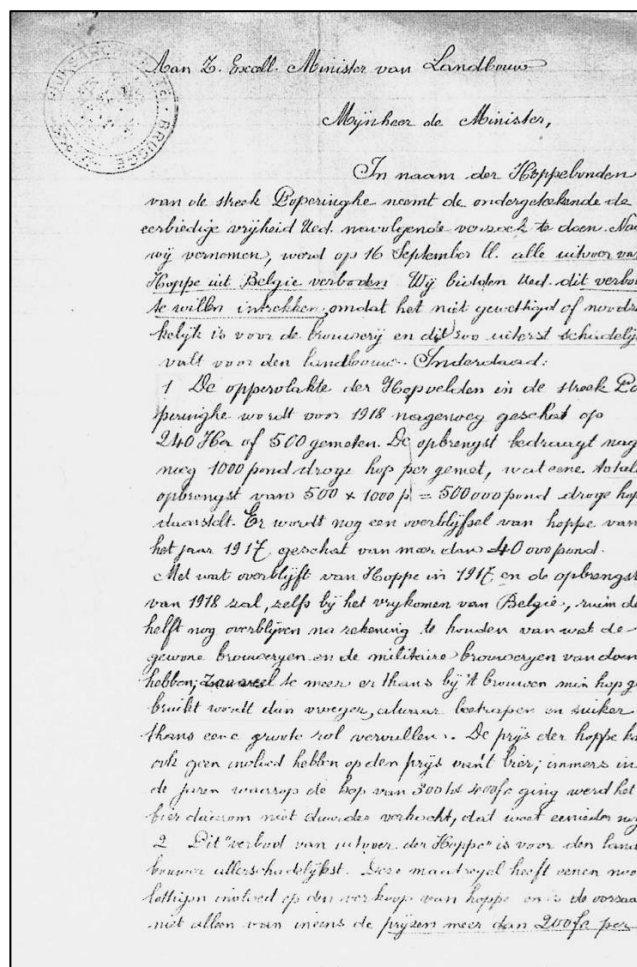 RIJKSARCHIEF BRUGGE
Aan Z. Excell. Minister van Landbouw
Mijnheer de Minister,
In naam der Hoppebonden
van de streek Poperinghe neemt de ondergeteekende de
eerbiedige vrijheid Ued. navolgende verzoek te doen. Naa
wij vernomen, werd op 16 September ll. alle uitvoer van
Hoppe uit België verboden. Wij bidden Ued. dit verbo
te willen intrekken, omdat het niet gewettigd of noodza
kelijk is voor de brouwerij en dit zoo uiterst schadelijk
valt voor den landbouw. Inderdaad:
1 De oppervlakte der Hopvelden in de streek Po
peringhe wordt voor 1918 nagenoeg geschat op
240 Ha of 500 gemeten. De opbrengst bedraagt nage
noeg 1000 pond droge hop per gemet, wat eene totale
opbrengst van 500 x 1000 p = 500000 pond droge hop
daarstelt. Er wordt nog een overblijfsel van hoppe van
het jaar 1917 geschat van meer dan 40000 pond.
Met wat overblijft van Hoppe in 1917 en de opbrengst
van 1918 zal, zelfs bij het vrijkomen van België, ruim de
helft nog overblijven na rekening te houden van wat de
gewone brouwerijen en de militaire brouwerijen van doen
hebben; te meer er thans bij 't brouwen min hop ge
bruikt wordt dan vroeger, alwaar beetrapen en suiker
thans eene groote rol vervullen. De prijs der hoppe ka
ook geen invloed hebben op den prijs van't bier; immers in
de jaren waarop de hop van 300 tot 400 fr ging werd het
bier daarom niet duurder verkocht, dat weet eenieder nog
2 Dit "verbod van uitvoer der Hoppe" is voor den land
bouwer allerschadelijkst. Deze maatregel heeft eenen noo
lottigen invloed op den verkoop van hoppe en is de oorzaa
niet alleen van ineens de prijzen meer dan 200 fr per